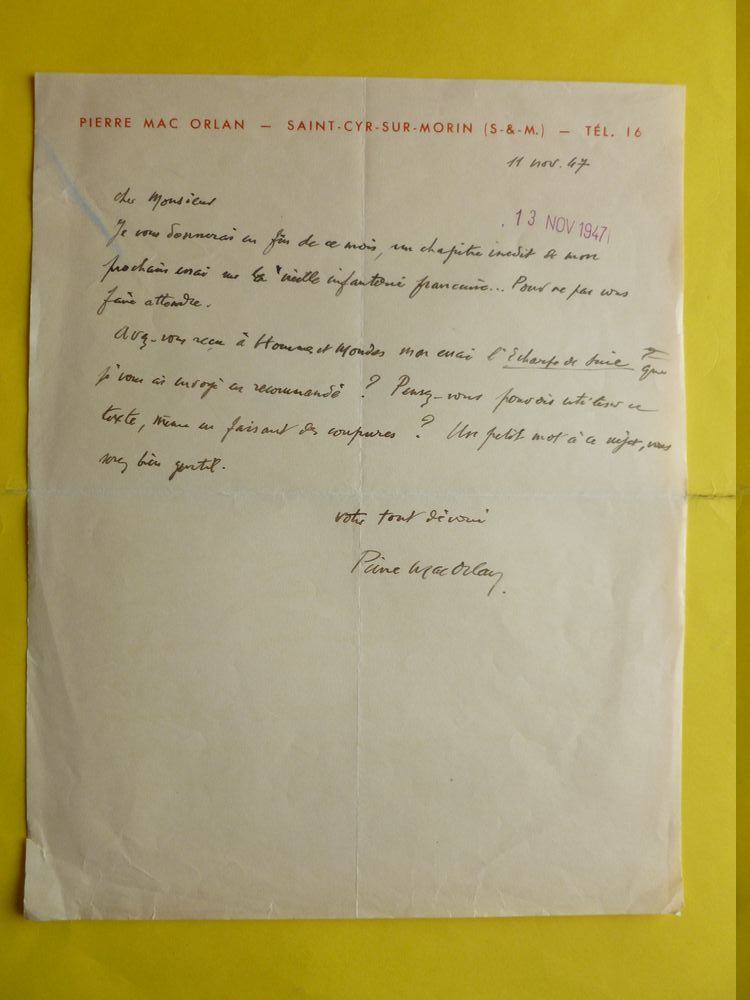 PIERRE MAC ORLAN — SAINT-CYR-SUR-MORIN (S-&-M.) — TÉL. 16
11 nov. 47
13 NOV 1947
cher Monsieur
Je vous donnerai en fin de ce mois, un chapitre inedit de mon
prochain essai sur la vieille infanterie française... Pour ne pas vous
faire attendre.
Avez-vous reçu à Hommes et Mondes mon essai l'Echarpe de Suie que
je vous ai envoyé en recommandé ? Pensez-vous pouvoir utiliser ce
texte, même en faisant des coupures ? Un petit mot à ce sujet, vous
serez bien gentil.
votre tout dévoué
Pierre Mac Orlan